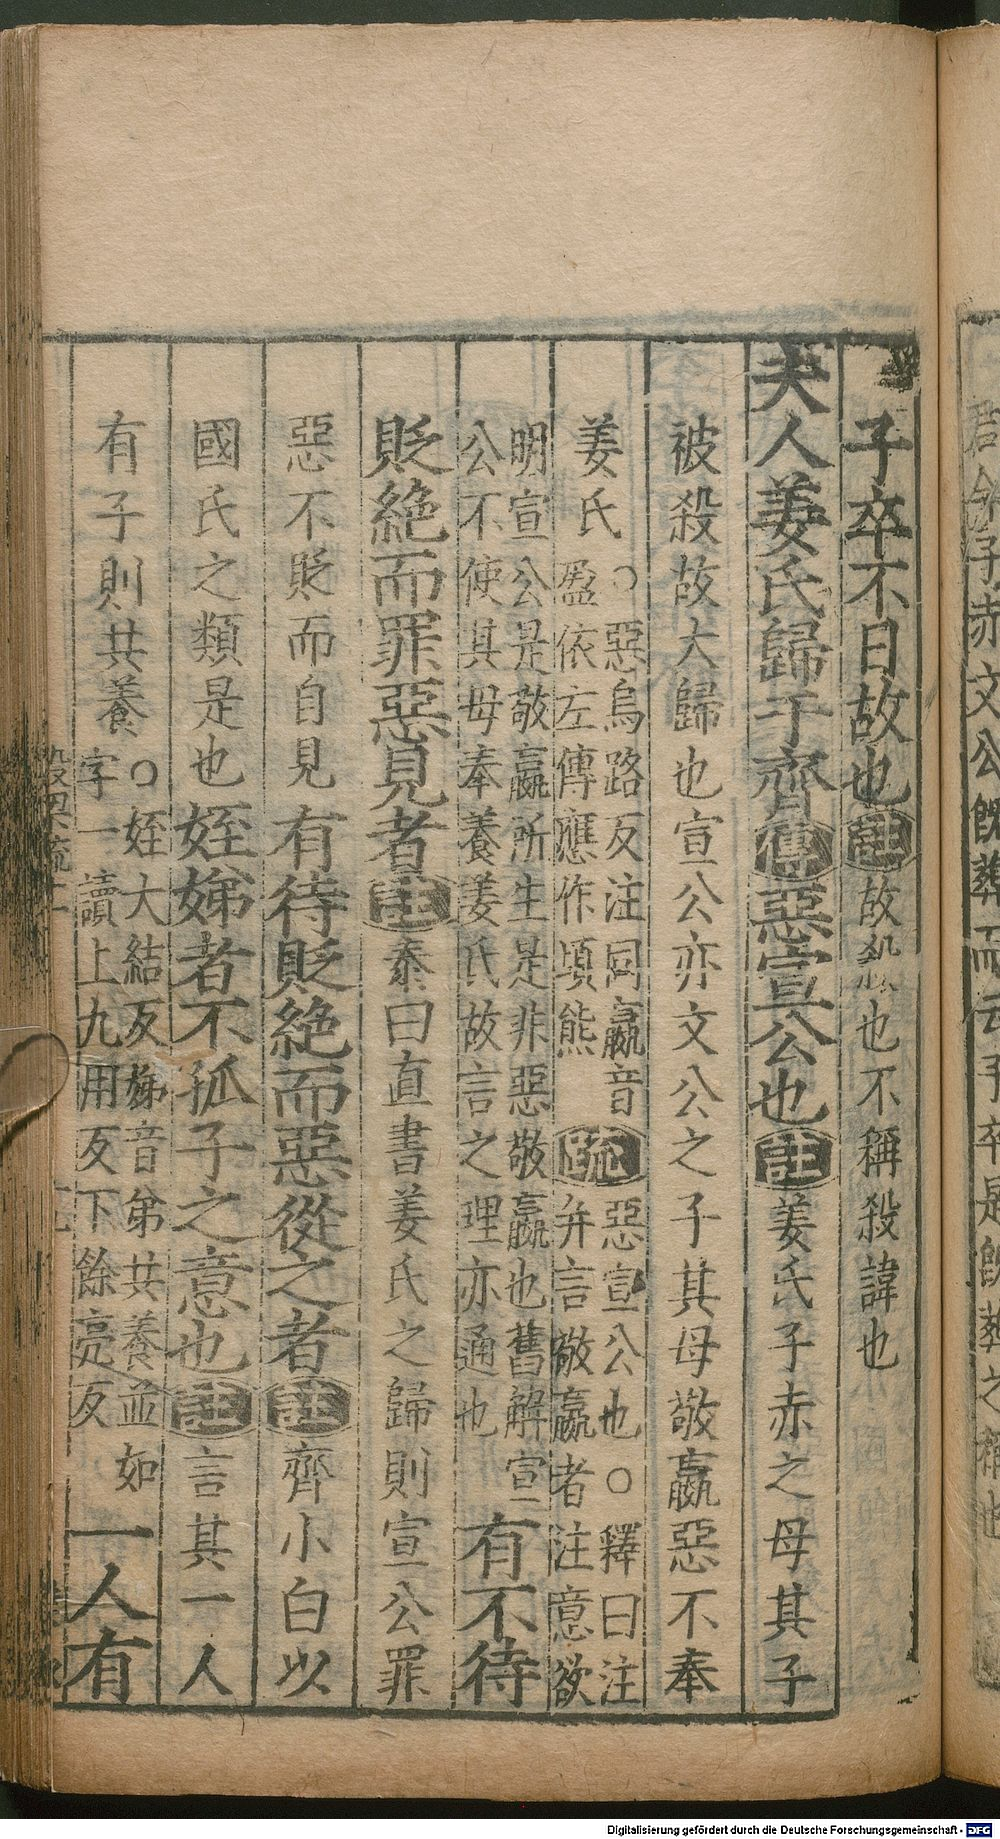 子卒不日故也註故殺也不稱殺諱也
夫人姜氏歸于齊傳惡宣公也註姜氏子赤之母其子
被殺故大歸也宣公亦文公之子其母敬嬴惡不奉
姜氏○惡烏路反注同嬴音
盈依左傳應作頃熊疏惡宣公也○釋曰注
并言敬嬴者注意欲
明宣公是敬嬴所生是非惡敬嬴也舊解宣
公不使其母奉養姜氏故言之理亦通也有不待
貶絶而罪惡見者註泰曰直書姜氏之歸則宣公罪
惡不貶而自見有待貶絶而惡從之者註齊小白以
國氏之類是也姪娣者不孤子之意也註言其一人
有子則共養○姪大結反娣音弟共養並如
字一讀上九用反下餘亮反一人有
Digitalisierung gefördert durch die Deutsche Forschungsgemeinschaft - DFG